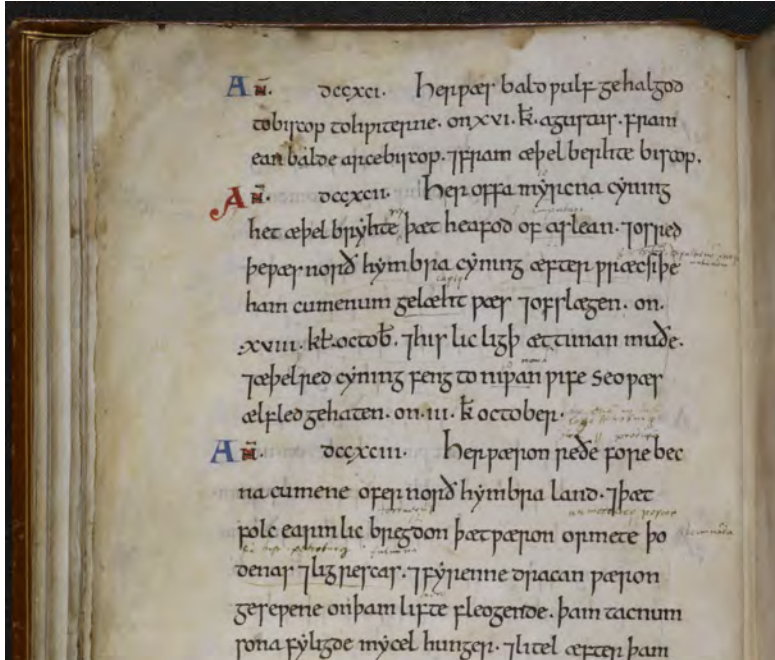 Añ. dccxci. Her ƿæs baldƿulf gehalgod
to biscop to hƿiterne. on xvi. k̄. agustus. fram
eanbalde arcebiscop. ⁊ fram æþelberhte biscop.
Añ. dccxcii. Her offa myrcna cyning
het æþelbryhte þæt heafod of aslean. ⁊ osred
þe ƿæs norðhymbria cyning æfter ƿræcsiþe
ham cumenum gelæht ƿæs ⁊ ofslægen. on.
.xviii. kł. octob̄. ⁊ his lic ligþ æt tinan muðe.
⁊ æþelred cyning feng to niƿan ƿife seo ƿæs
ælfled gehaten. on .iii. k̄ october.
Añ. dccxciii. Her ƿæron reðe forebec
na cumene ofer norðhymbria land. ⁊ þæt
folc earmlic bregdon þæt ƿæron ormete þo
denas ⁊ ligrescas. ⁊ fyrenne dracan ƿæron
geseƿene on þam lifte fleogende. þam tacnum
sona fyligde mycel hunger. ⁊ litel æfter þam